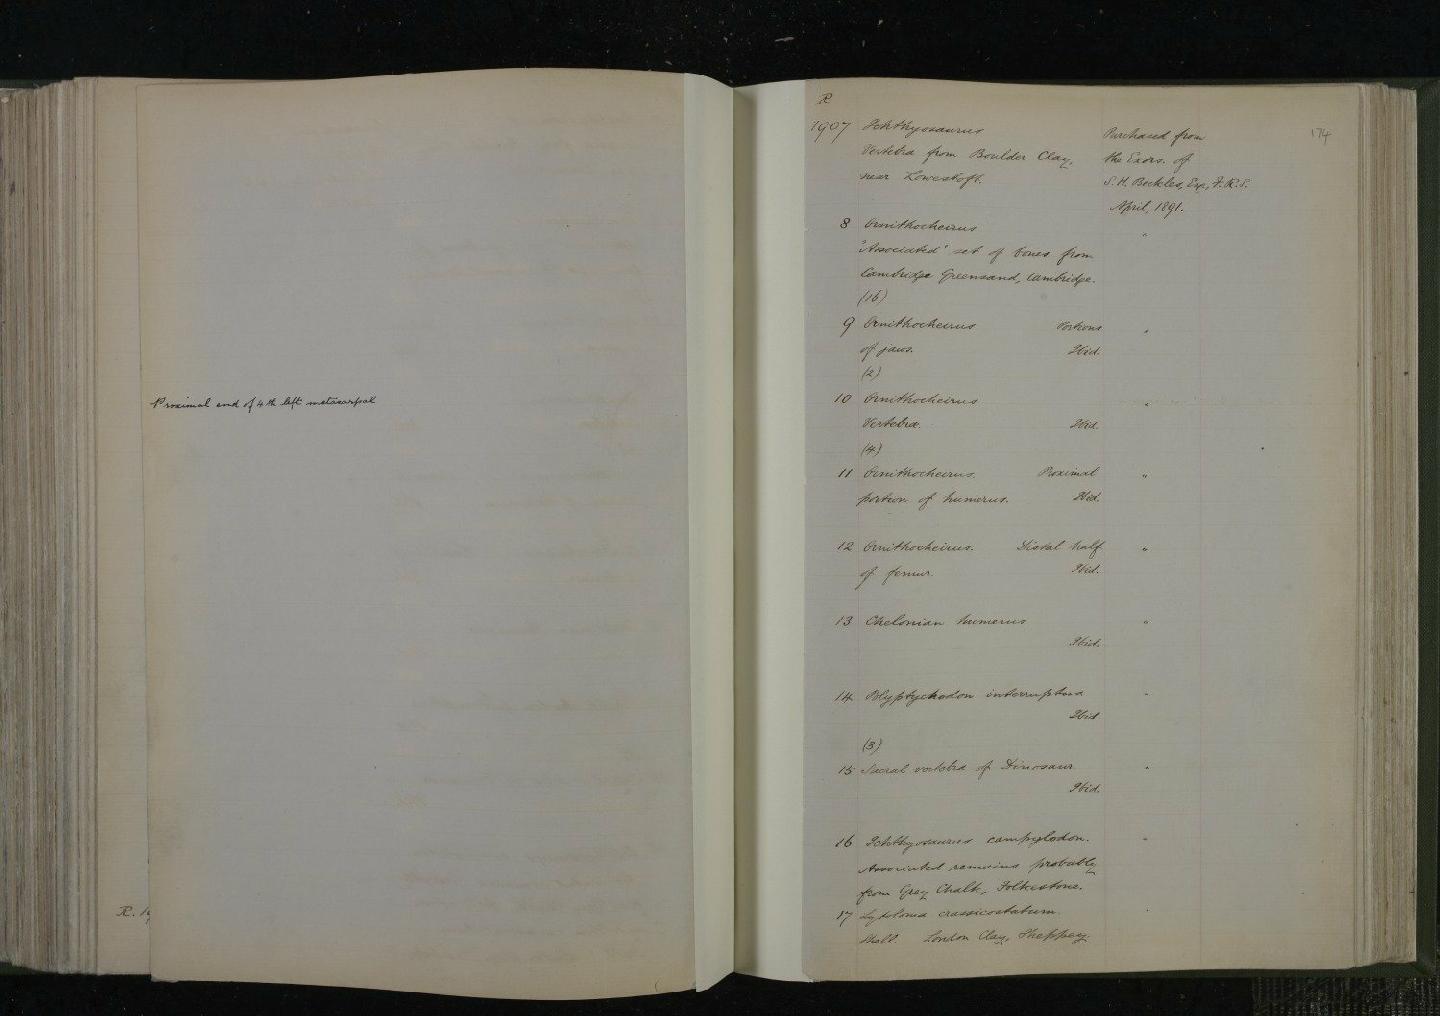 Proximal end of 4th left metacarpal
R. 19
R
174
1907 Ichthyosaurus
Vertebra from Boulder Clay,
near Lowestoft.
Purchased from
the Exors. of
S. H. Beckles, Esq, F.R.S.
April, 1891.
8 Ornithocheirus "
'Associated' set of bones from
Cambridge Greensand, Cambridge.
(16)
9 Ornithocheirus Portions "
of jaws. Ibid.
(2)
10 Ornithocheirus "
Vertebræ. Ibid.
(4)
11 Ornithocheirus. Proximal "
portion of humerus. Ibid.
12 Ornithocheirus. Distal half "
of femur. Ibid.
13 Chelonian humerus "
Ibid.
14 Polyptychodon interruptus "
Ibid
(3)
15 Sacral vertebra of Dinosaur "
Ibid.
16 Ichthyosaurus campylodon. "
Associated remains probably
from Grey Chalk, Folkestone.
17 Lytoloma crassicostatum. "
Skull. London Clay, Sheppey.